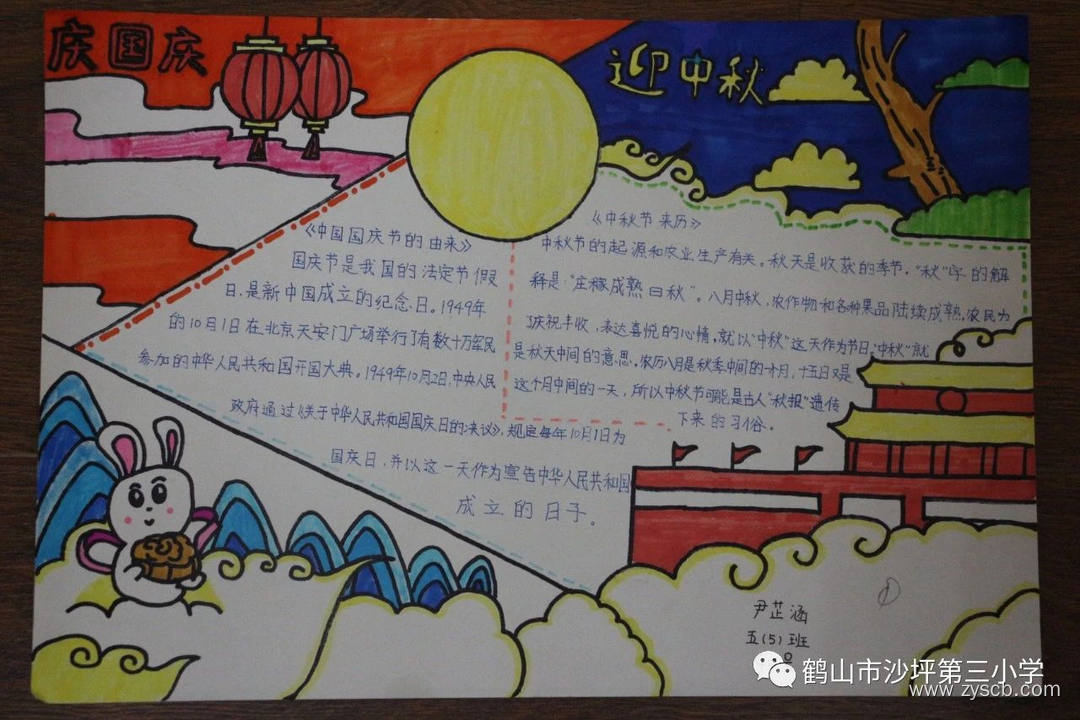 庆国庆
迎中秋
《中国国庆节的由来》
国庆节是我国的法定节假
日,是新中国成立的纪念日。1949年
的10月1日在北京天安门广场举行了有数十万军民
参加的中华人民共和国开国大典。1949年10月2日,中央人民
政府通过《关于中华人民共和国国庆日的决议》,规定每年10月1日为
国庆日,并以这一天作为宣告中华人民共和国
成立的日子。
《中秋节来历》
中秋节的起源和农业生产有关。秋天是收获的季节,“秋”字的解
释是:“庄稼成熟曰秋”。八月中秋,农作物和各种果品陆续成熟,农民为
了庆祝丰收,表达喜悦的心情,就以“中秋”这天作为节日,“中秋”就
是秋天中间的意思,农历八月是秋季中间的一个月,十五日又是
这个月中间的一天,所以中秋节可能是古人“秋报”遗传
下来的习俗。
尹芷涵
五(5)班
号
鹤山市沙坪第三小学
www.zyscb.com